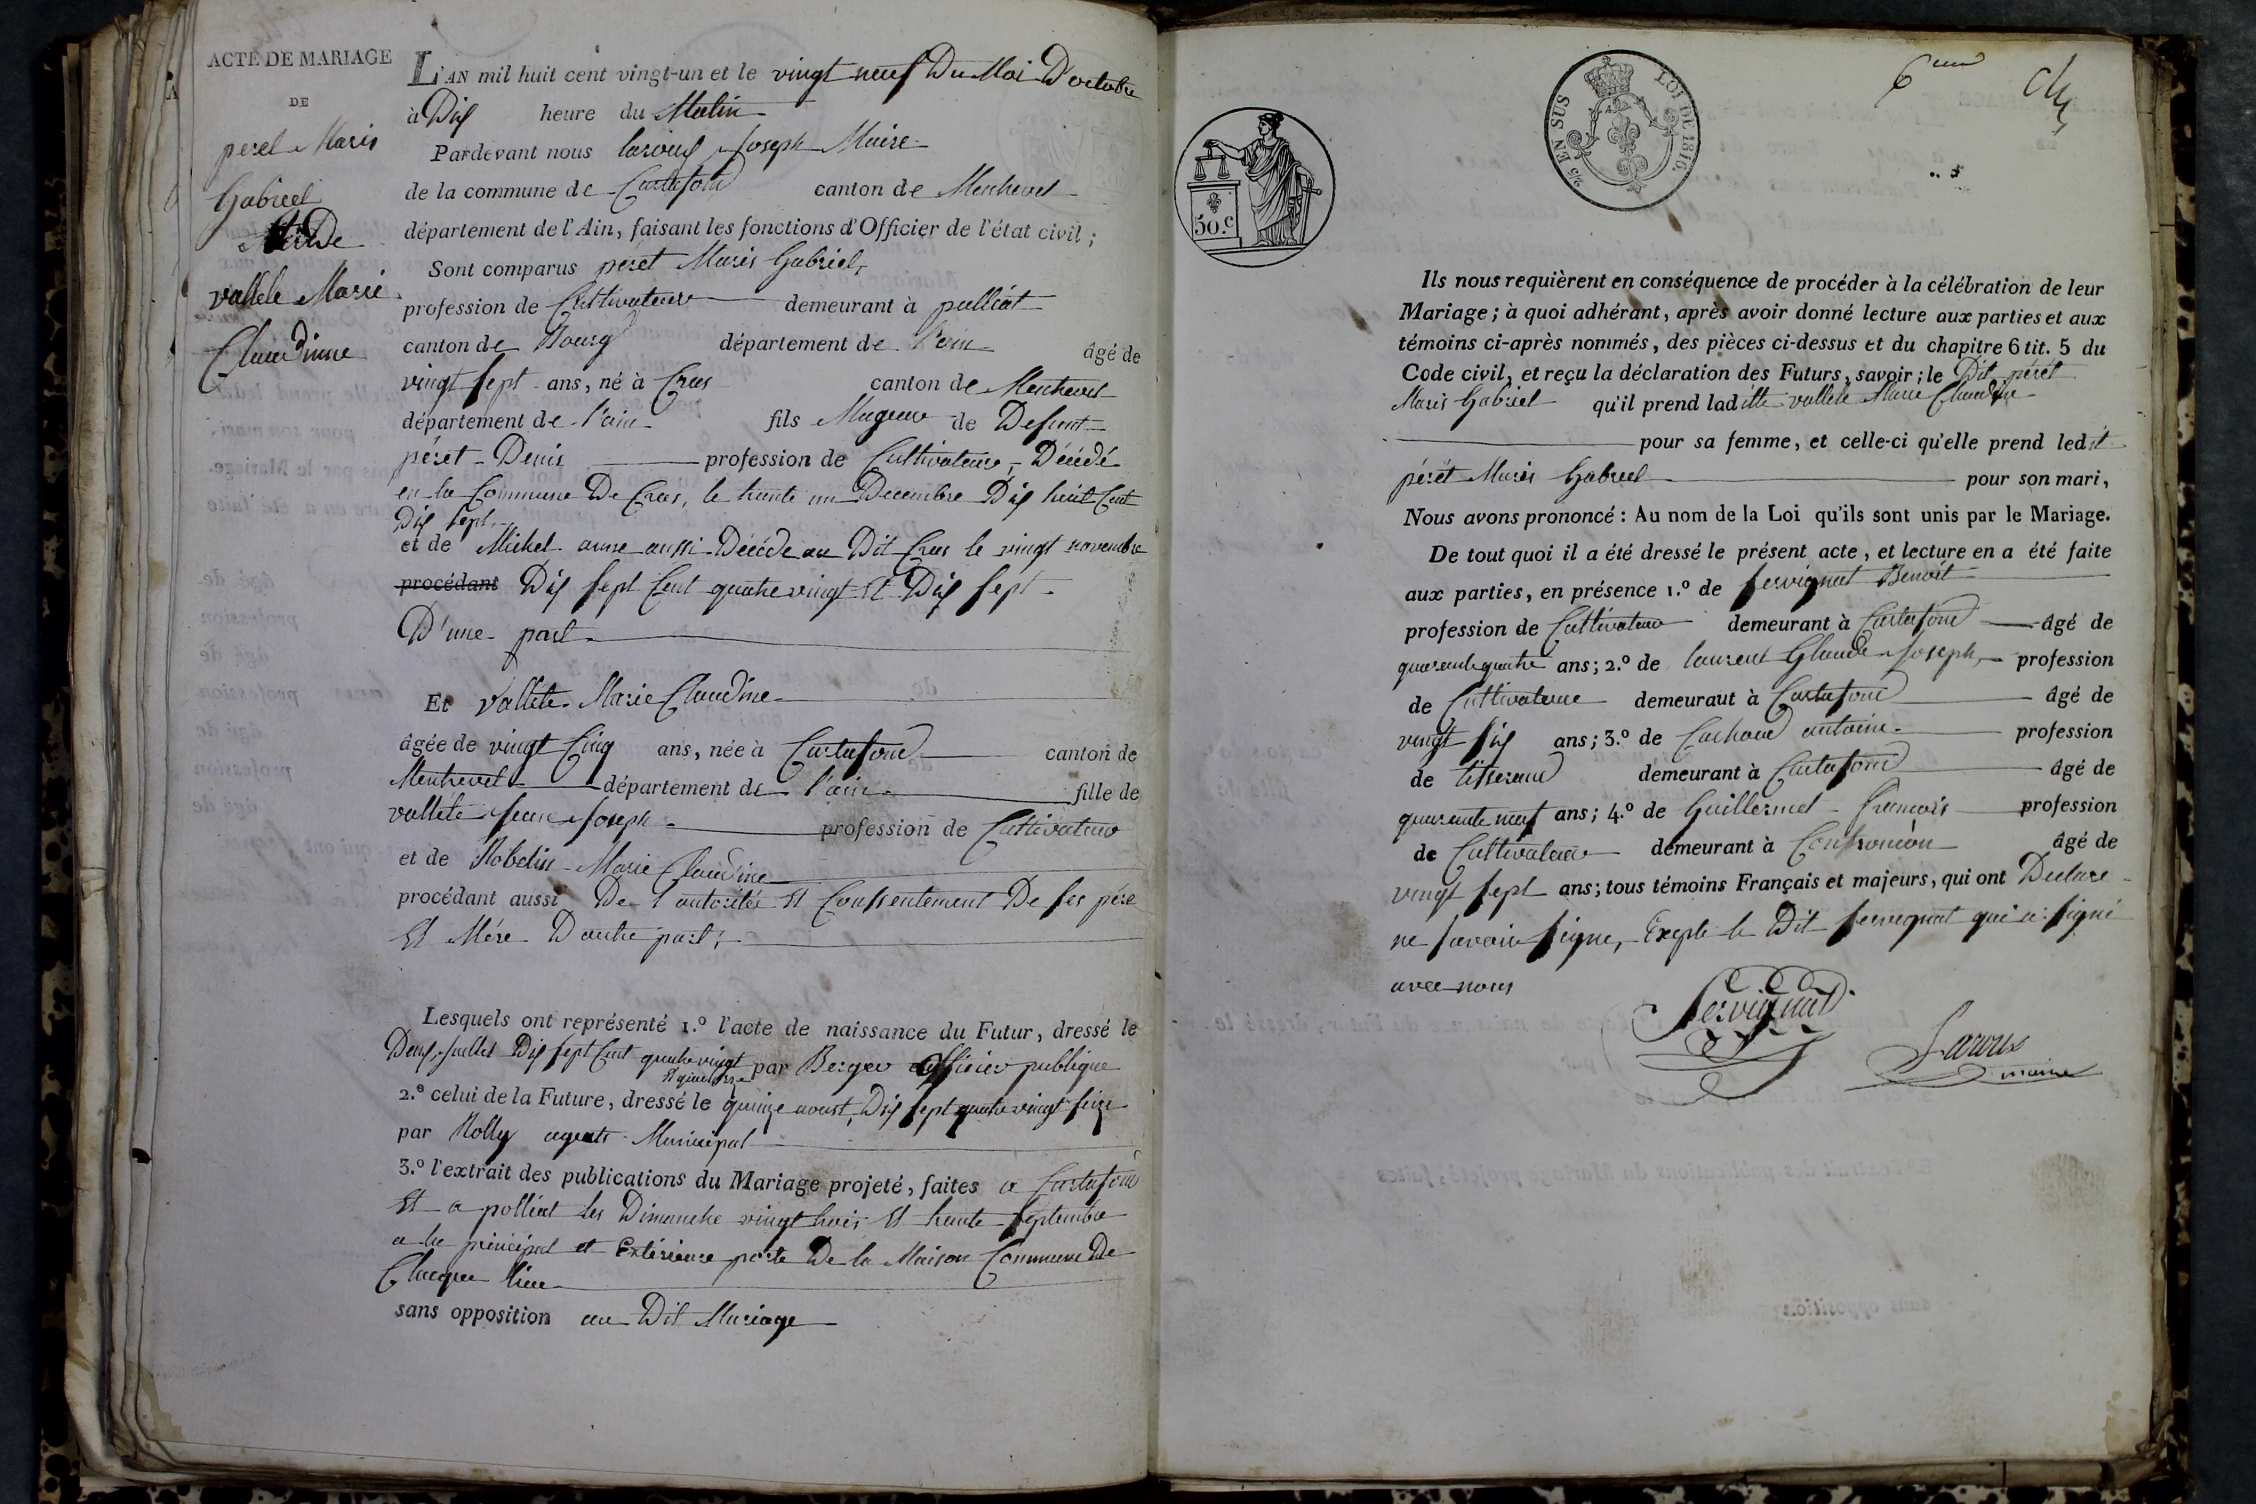 ACTE DE MARIAGE
DE
peret Maris
Gabriel
vallete Marie
Claudinne
L'AN mil huit cent vingt-un et le vingt neuf Du Moi D'octobre
à Dix heure du Matin
Pardevant nous laroux Joseph Maire
de la commune de Curtafond canton de Montrevel
département de l'Ain, faisant les fonctions d'Officier de l'état civil ;
Sont comparus peret Maris Gabriel,
profession de Cultivateur demeurant à polliat
canton de Bourg département de l'ain âgé de
vingt sept ans, né à Cras canton de Montrevel
département de l'ain fils Mageur de Defunt
péret Denis profession de Cultivateur, Décédé
en la Commune De Cras, le trante un Decembre Dix huit Cent
Dix sept.
et de Michel anne aussi Décédé au Dit Cras le vingt novembre
procédant Dix sept Cent quatrevingt Et Dix sept
D'une part
Et vallete Marie Claudine
âgée de vingt Cinq ans, née à Curtafond canton de
Montrevel département de l'ain fille de
valléte Jean Joseph profession de Cultivateur
et de Robelin Marie Claudine
procédant aussi De l'autorités Et Consentement De ses pére
Et Mére D'autre part ;
Lesquels ont représenté 1.º l'acte de naissance du Futur, dressé le
Deux Juillet Dix sept Cent quatrevingt par Berger officier publique
Et quatorze
2.º celui de la Future, dressé le quinze aoust, Dix sept quatrevingt seize
par Rolly agent Municipal
3.º l'extrait des publications du Mariage projeté, faites a Curtafond
Et a polliat les Dimanche vingt trois Et trante septembre
a la principal et Extérieure porte De la Maison Commune De
Chaque lieu
sans opposition au Dit Mariage
50.c
2/5 EN SUS LOI DE 1816.
6eme
Ils nous requièrent en conséquence de procéder à la célébration de leur
Mariage ; à quoi adhérant, après avoir donné lecture aux parties et aux
témoins ci-après nommés, des pièces ci-dessus et du chapitre 6 tit. 5 du
Code civil, et reçu la déclaration des Futurs, savoir ; le Dit pérét
Maris Gabriel qu'il prend laditte vallete Marie Claudine
pour sa femme, et celle-ci qu'elle prend ledit
pérét Maris Gabriel pour son mari,
Nous avons prononcé : Au nom de la Loi qu'ils sont unis par le Mariage.
De tout quoi il a été dressé le présent acte, et lecture en a été faite
aux parties, en présence 1.º de servignat Benoit
profession de Cultivateur demeurant à Curtafond âgé de
quarantequatre ans ; 2.º de laurent Glaude Joseph, profession
de Cultivateur demeuraut à Curtafond âgé de
vingt six ans ; 3.º de Cachoud antoine profession
de tisserand demeurant à Curtafond âgé de
quarante neuf ans ; 4.º de Guillermet francois profession
de Cultivateur demeurant à Confrancon âgé de
vingt sept ans ; tous témoins Français et majeurs, qui ont Declare
ne savoir signe, Exepte le Dit servignat qui a signé
avec nous
Servignat
Laroux
maire